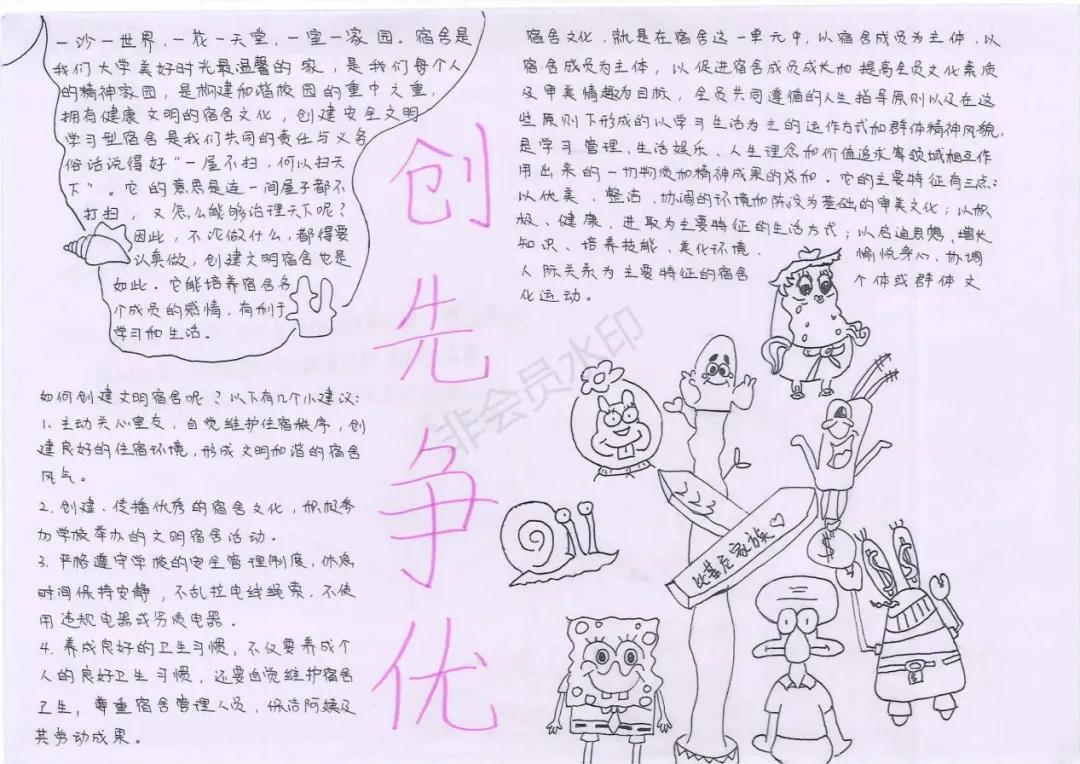 一沙一世界,一花一天堂,一室一家园。宿舍是
我们大学美好时光最温馨的家,是我们每个人
的精神家园,是构建和谐校园的重中之重,
拥有健康文明的宿舍文化,创建安全文明
学习型宿舍是我们共同的责任与义务
俗话说得好“一屋不扫,何以扫天
下”,它的意思是连一间屋子都不
打扫,又怎么能够治理天下呢?
因此,不论做什么,都得要
认真做,创建文明宿舍也是
如此.它能培养宿舍各
个成员的感情,有利于
学习和生活。
如何创建文明宿舍呢?以下有几个小建议:
1.主动关心室友,自觉维护住宿秩序,创
建良好的住宿环境,形成文明和谐的宿舍
风气。
2.创建、传播优秀的宿舍文化,积极参
加学校举办的文明宿舍活动.
3.严格遵守学校的安全管理制度,休息
时间保持安静,不乱拉电线绳索,不使
用违规电器或劣质电器.
4.养成良好的卫生习惯,不仅要养成个
人的良好卫生习惯,还要自觉维护宿舍
卫生,尊重宿舍管理人员,保洁阿姨及
其劳动成果。
创
先
争
优
宿舍文化,就是在宿舍这一单元中,以宿舍成员为主体,以
宿舍成员为主体,以促进宿舍成员成长和提高全员文化素质
及审美情趣为目标,全员共同遵循的人生指导原则以及在这
些原则下形成的以学习生活为主的运作方式和群体精神风貌,
是学习管理、生活娱乐、人生理念和价值追求等领域相互作
用出来的一切物质和精神成果的总和.它的主要特征有三点:
以优美、整洁、协调的环境和陈设为基础的审美文化;以积
极、健康、进取为主要特征的生活方式;以启迪思想、增长
知识、培养技能、美化环境、愉悦身心、协调
人际关系为主要特征的宿舍个体或群体文
化运动。
比基尼家族
非会员水印